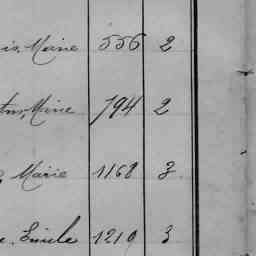 Marie 556 2
794 2
Marie 1168 3
Emile 1219 3